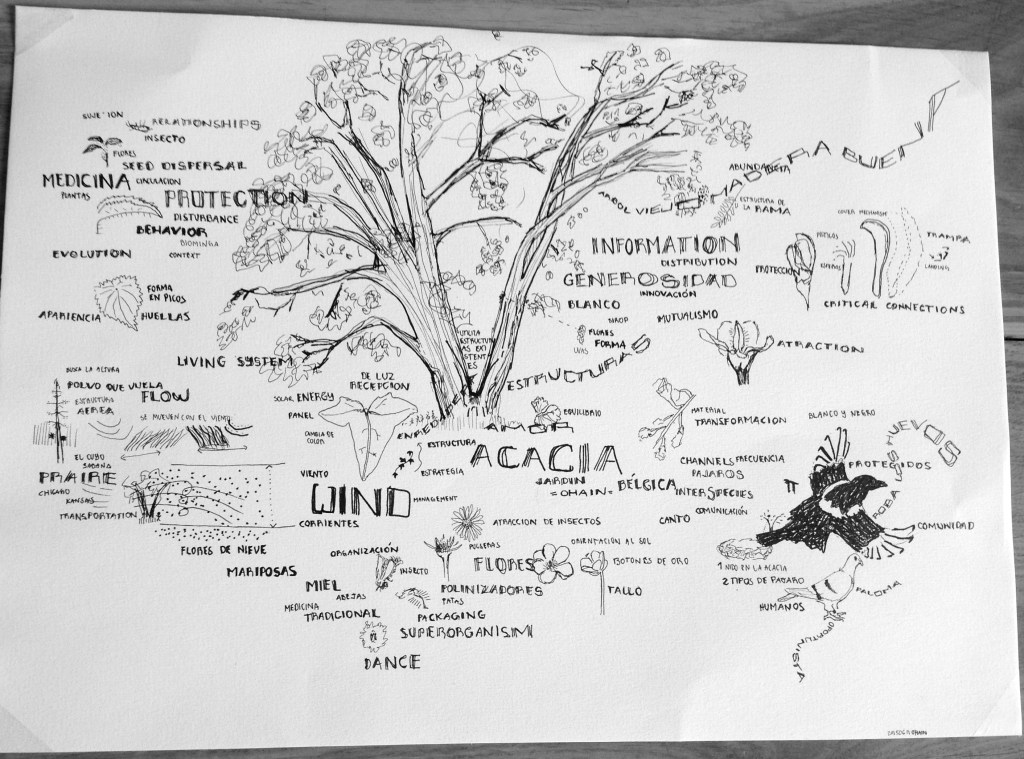 INSECTO
FLORES
SEED DISPERSAL
MEDICINA
CIRCULACION
PLANTAS
PROTECTION
DISTURBANCE
BEHAVIOR
CONTEXT
EVOLUTION
FORMA
EN PICOS
APARIENCIA
HUELLAS
LIVING SYSTEM
ABUNDANCIA
ARBOL VIEJO
MADERA BUENA
ESTRUCTURA DE
LA RAMA
INFORMATION
DISTRIBUTION
GENEROSIDAD
INNOVACIÓN
BLANCO
SIROP
MUTUALISMO
FLORES
FORMA
UVAS
PETALOS
TRAMPA
LANDING
PROTECCION
CRITICAL CONNECTIONS
ATRACTION
ESTRUCTURAS
UTILIZA
ESTRUCTUR
AS EXI
STENT
ES
BUSCA LA ALTURA
POLVO QUE VUELA
FLOW
ESTRUCTURA
AEREA
SE MUEVEN CON EL VIENTO
EL CUBO
SABANA
PRAIRE
CHICAGO
KANSAS
TRANSPORTATION
FLORES DE NIEVE
DE LUZ
RECEPCION
SOLAR ENERGY
PANEL
CAMBIA DE
COLOR
EQUILIBRIO
ESTRUCTURA
ESTRATEGIA
ACACIA
JARDIN
=OHAIN=
BÉLGICA
VIENTO
WIND
MANAGEMENT
CORRIENTES
MATERIAL
TRANSFORMACION
BLANCO Y NEGRO
CHANNELS FRECUENCIA
PAJAROS
INTERSPECIES
COMUNICACIÓN
CANTO
ROBA LOS HUEVOS
PROTEGIDOS
COMUNIDAD
1 NIDO EN LA ACACIA
2 TIPOS DE PAJARO
HUMANOS
PALOMA
OPORTUNISTA
ATRACCION DE INSECTOS
ORIENTACION AL SOL
ORGANIZACIÓN
FLORES
BOTONES DE ORO
TALLO
MARIPOSAS
INSECTO
MIEL
ABEJAS
POLINIZADORES
PATAS
MEDICINA
TRADICIONAL
PACKAGING
SUPERORGANISM
DANCE